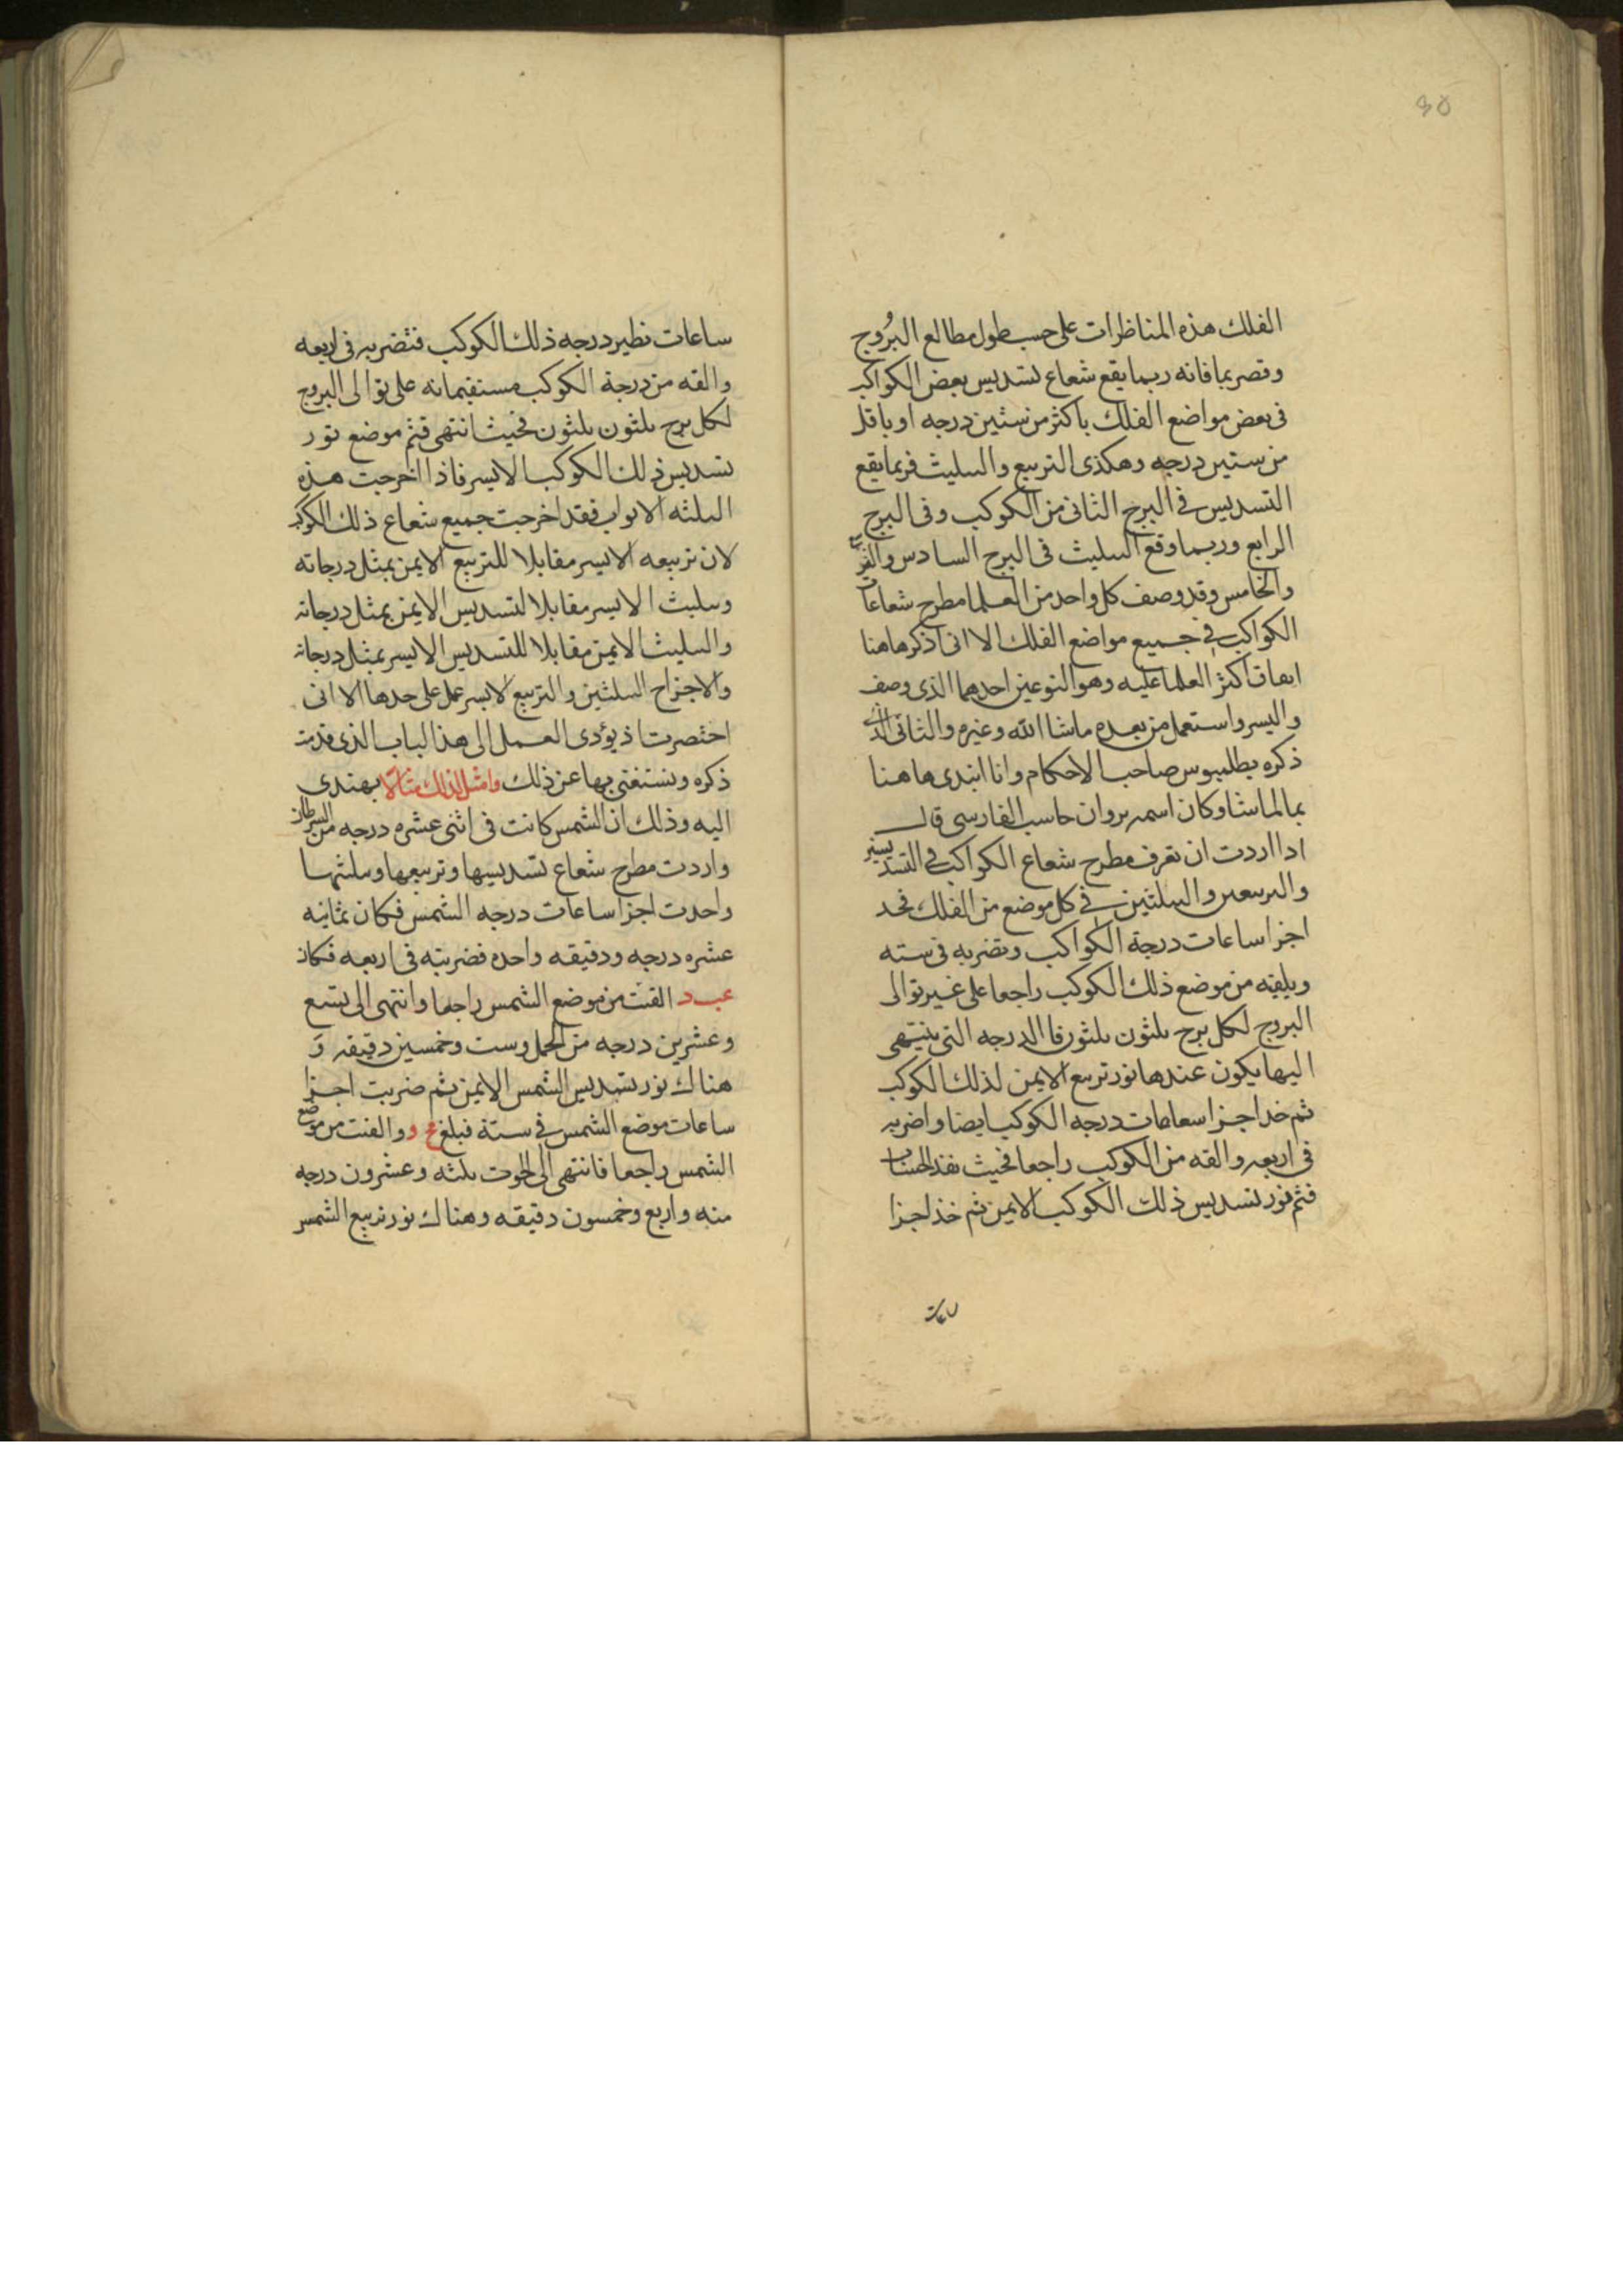 30
الفلك هذه المناظرات على حسب طول مطالع البُروج
وقصربها فانه ربما يقع شعاع تسديس بعض الكواكب
فى بعض مواضع الفلك باكثر من ستين درجه او باقل
من ستين درجه وهكذى التربيع والىىليث فربما يقع
التسديس فى البرج الثانى من الكوكب وفى البرج
الرابع وربما وقع الىىليث فى البرج السادس و
والخامس وقد وصف كل واحد من العلما مطرح شعاعات
الكواكب فى جميع مواضع الفلك الا انى اذكر هاهنا
اىفاق اكثر العلما عليه وهو النوعين احدهما الذى وصف
واليسر واستعمل من بعده ماشا الله وغيره والثانى الذى
ذكره بطلميوس صاحب الاحكام وانا ابتدى هاهنا
بمالماشا وكان اسمه بروان حاسب الفارسى قال
ادا اردت ان تعرف مطرح شعاع الكواكب فى التسديسين
والىرىىعىں والىىلثين فى كل موضع من الفلك فحد
اجزا ساعات درجة الكواكب وتضربه فى سته
ويلقيه من موضع ذلك الكوكب راجعا على غير توالى
البروج لكل برج ىلثون ىلثون فا الدرجه التى ينتهى
اليها يكون عندها نور تربيع الايمن لذلك الكوكب
ثم خد اجزا سعاعات درجه الكوكب ايضا واضربه
فى اربعه والقه من الكوكب راجعا فحيث نفد الحساب
فثم نور تسديس ذلك الكوكب الايمن ثم خذ اجزا
ساعات
ساعات نطير درجه ذلك الكوكب فتضربه فى اربعه
والقه من درجة الكوكب مستقيمانه على توالى البروج
لكل برج ىلثون ىلثون فحيث انتهى فثم موضع نور
تسديس ذلك الكوكب الايسر فاذا اخرجت هذه
الىلثه الابواب فقد اخرجت جميع شعاع ذلك الكوكب
لان تربيعه الايسر مقابلا للتربيع الايمن بمثل درجاته
وىىليث الايسر مقابلا لتسديس الايمن بمثل درجاته
والىىليث الايمن مقابلا للتسديس الايسر بمثل درجاته
والاجزاح الىىلثين والتربيع لايسر عمل على حدها الا انى
اختصرت اذ يؤدى العمل الى هذا الباب الذى قدمت
ذكره ونستغنى بها عن ذلك وامثل لذلك مثالا يهتدى
اليه وذلك ان الشمس كانت فى اثنى عشره درجه من السرطان
واردت مطرح شعاع تسديسها وتربيعها وىىلثها
واحدت اجزا ساعات درجه الشمس فكان ثمانيه
عشره درجه ودقيقه واحده فضربته فى اربعه فكان
عب د القيت من موضع الشمس راجعا وانتهى الى تسع
وعشرين درجه من الحمل وست وخمسين دقيقه و
هناك نور تسديس الشمس الايمن ثم ضربت اجزا
ساعات موضع الشمس فى ستة فبلغ قح و والقيت من موضع
الشمس راجعا فانتهى الى الحوت ىلثه وعشرون درجه
منه واربع وخمسون دقيقه وهناك نور تربيع الشمس